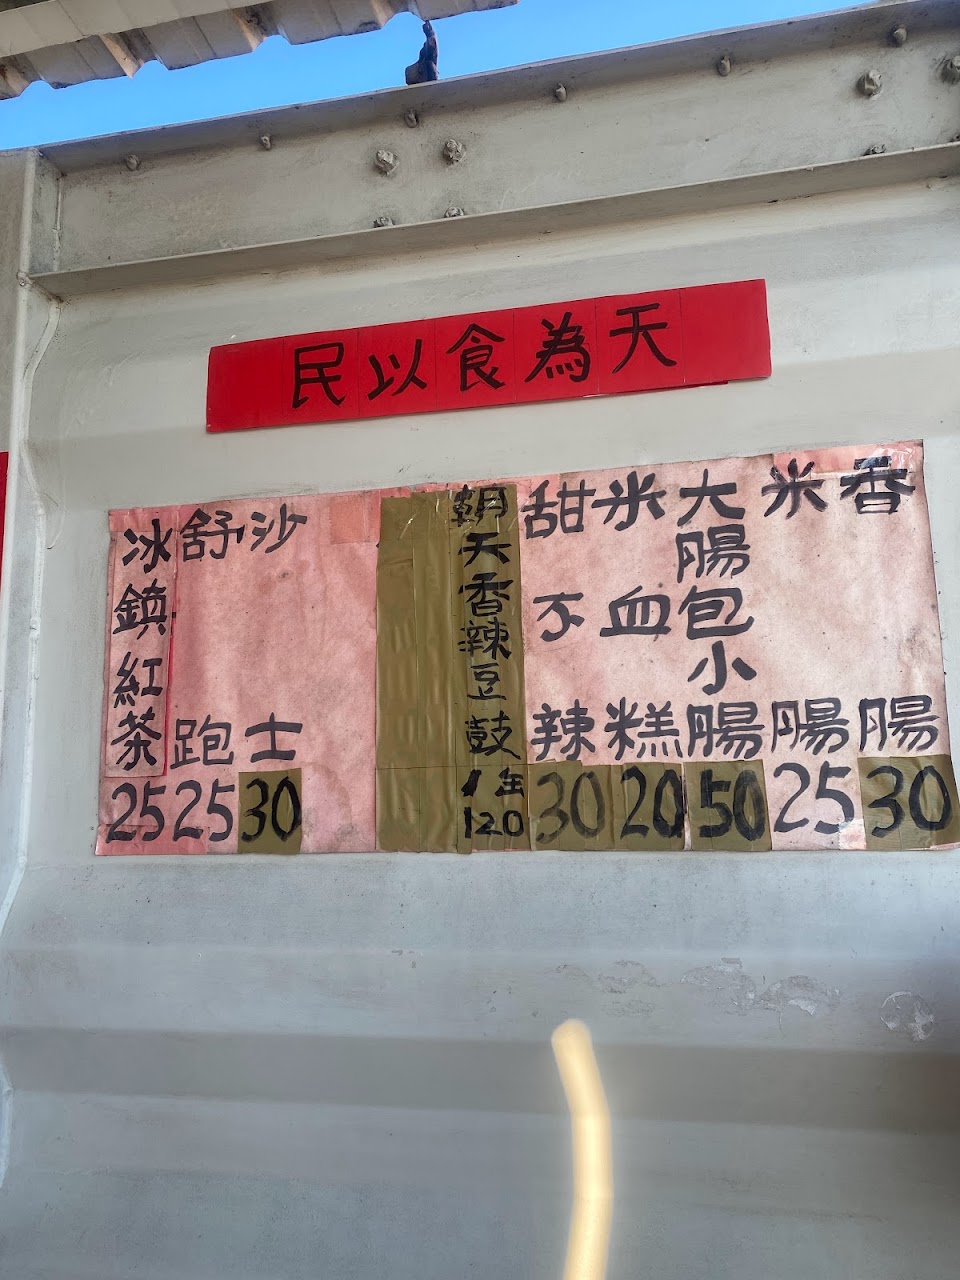 民以食為天
香腸30
米腸25
大腸包小腸50
米血糕20
甜不辣30
朝天香辣豆鼓1缶120
沙士30
舒跑25
冰鎮紅茶25